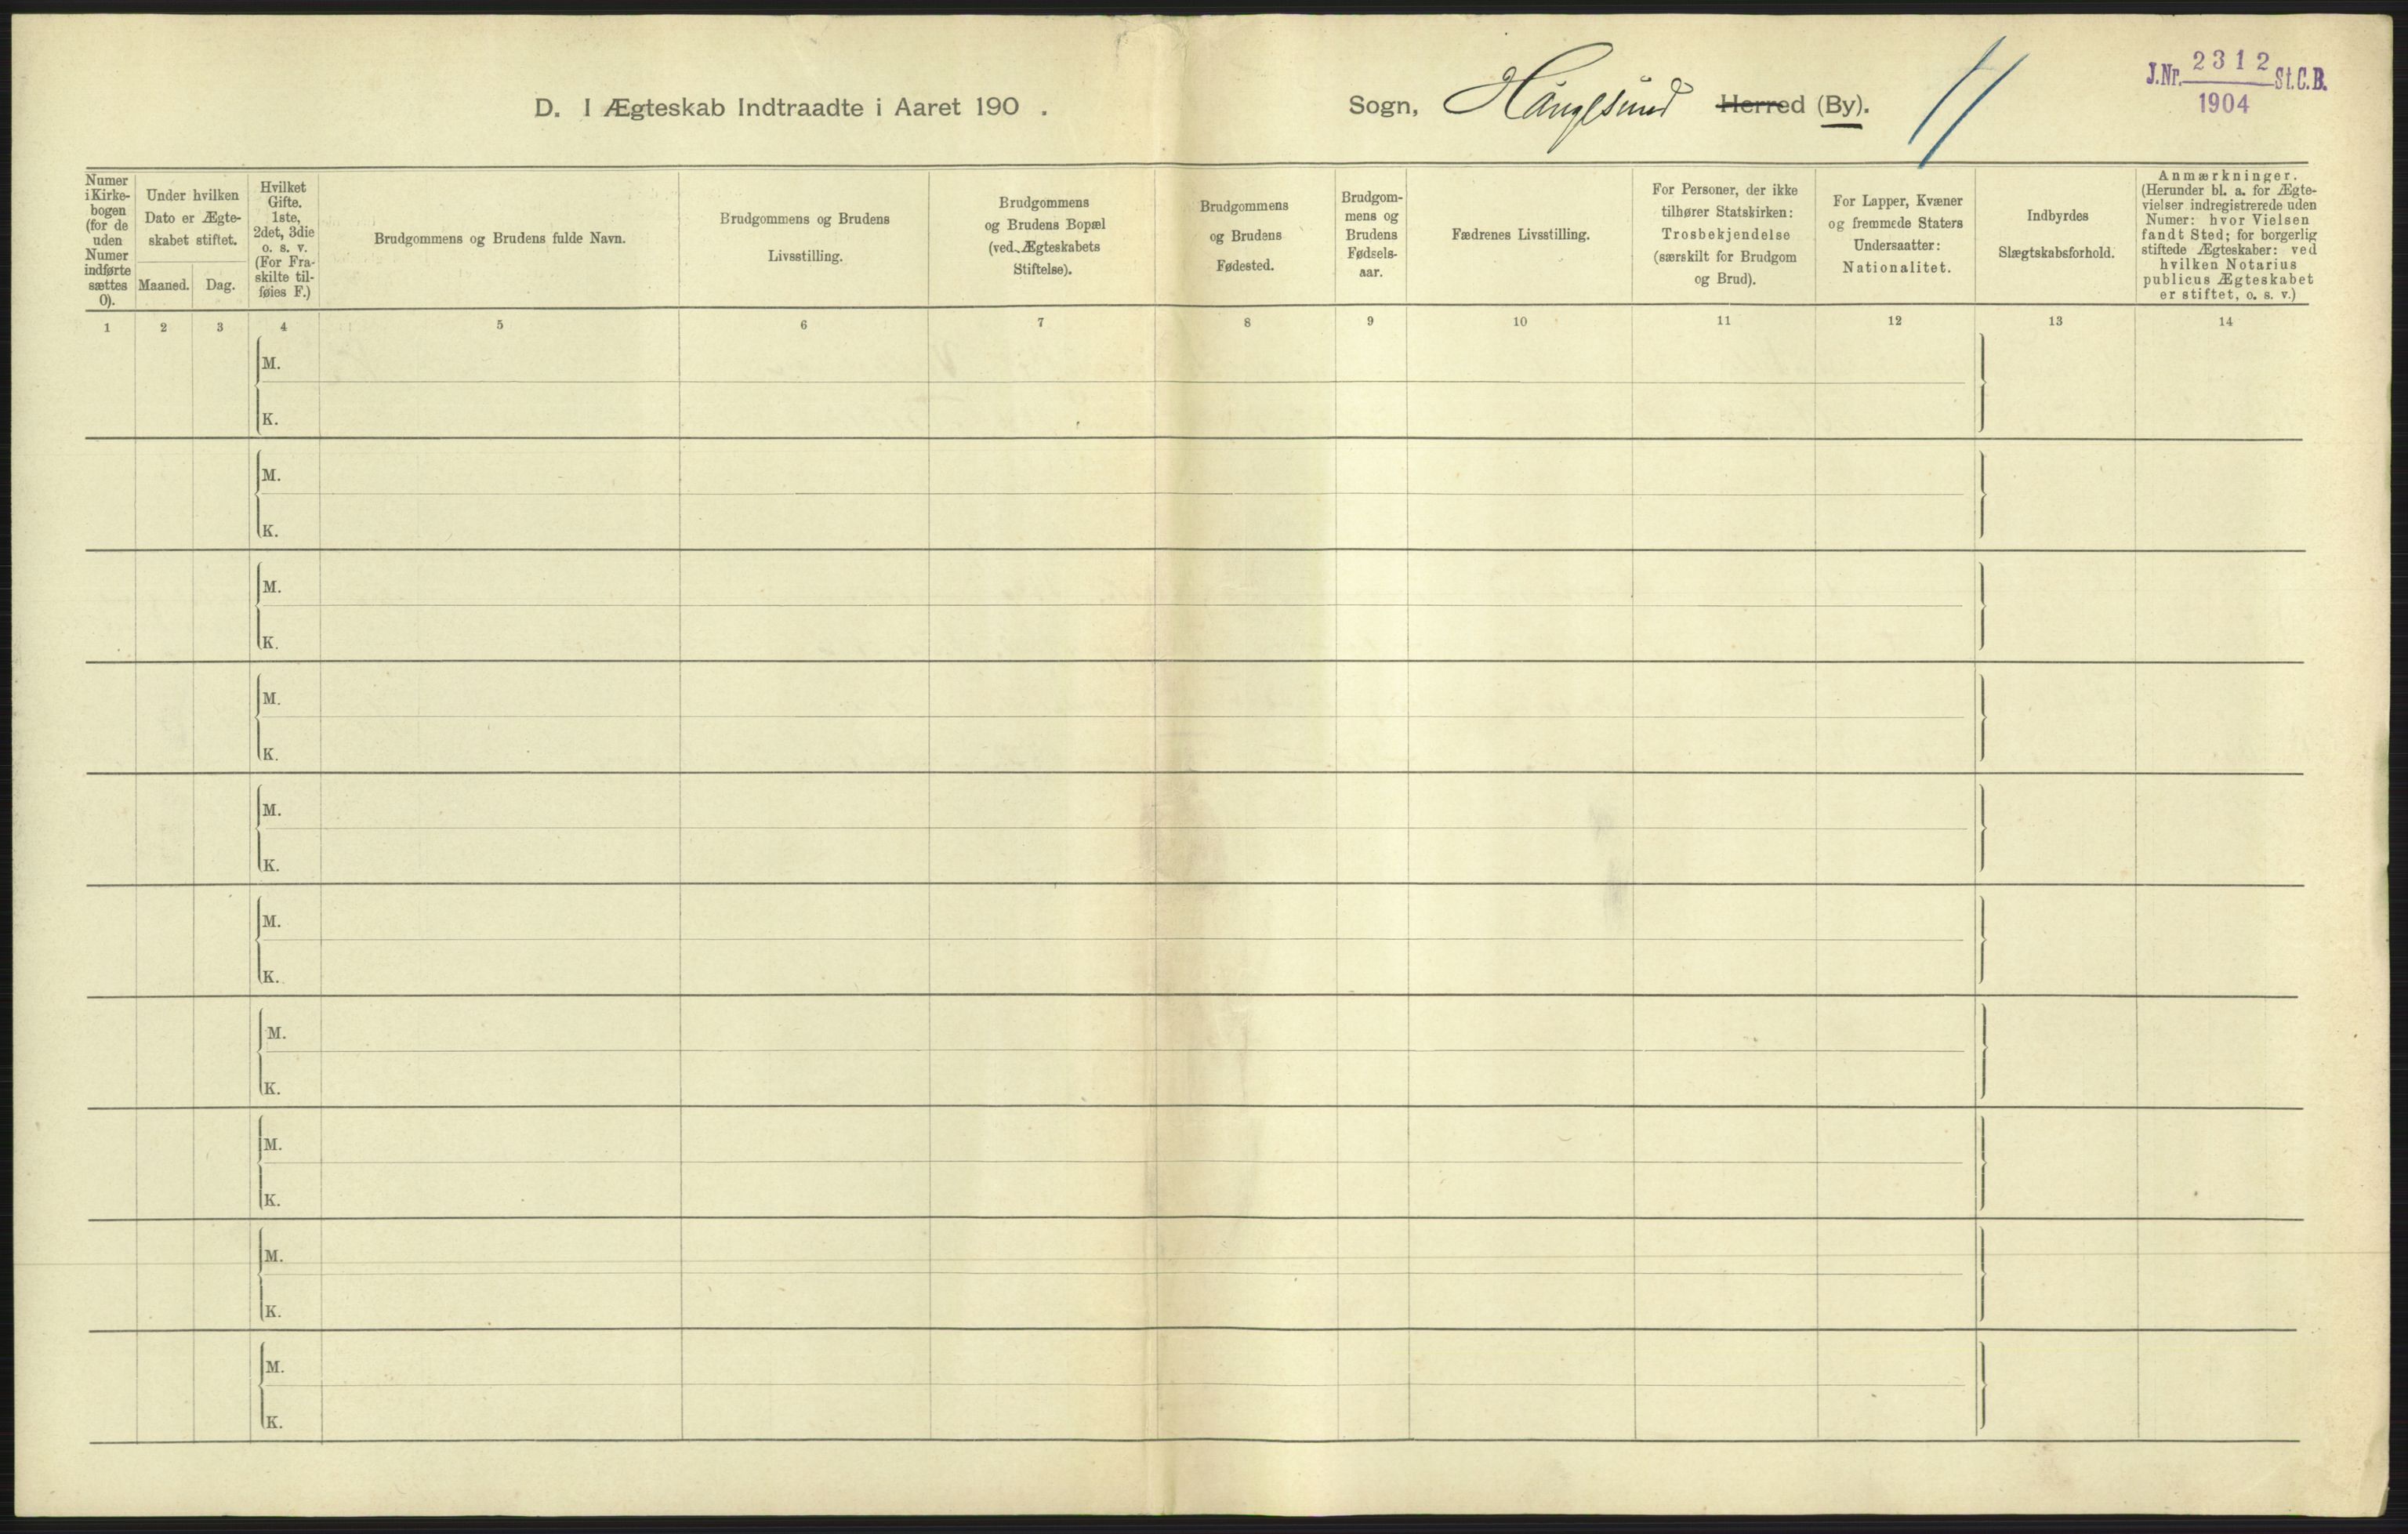 D. I Ægteskab Indtraadte i Aaret 190 .
Sogn, Haugesund Herred (By).
J.Nr. 2312 St.C.B.
1904
Numer
i Kirke-
bogen
(for de
uden
Numer
indførte
sættes
0).
Under hvilken
Dato er Ægte-
skabet stiftet.
Maaned. Dag.
Hvilket
Gifte.
1ste,
2det, 3die
o. s. v.
(For Fra-
skilte til-
føies F.)
Brudgommens og Brudens fulde Navn.
Brudgommens og Brudens
Livsstilling.
Brudgommens
og Brudens Bopæl
(ved Ægteskabets
Stiftelse).
Brudgommens
og Brudens
Fødested.
Brudgom-
mens og
Brudens
Fødsels-
aar.
Fædrenes Livsstilling.
For Personer, der ikke
tilhører Statskirken:
Trosbekjendelse
(særskilt for Brudgom
og Brud).
For Lapper, Kvæner
og fremmede Staters
Undersaatter:
Nationalitet.
Indbyrdes
Slægtskabsforhold.
Anmærkninger.
(Herunder bl. a. for Ægte-
vielser indregistrerede uden
Numer: hvor Vielsen
fandt Sted; for borgerlig
stiftede Ægteskaber: ved
hvilken Notarius
publicus Ægteskabet
er stiftet, o. s. v.)
1 2 3 4 5 6 7 8 9 10 11 12 13 14
M.
K.
M.
K.
M.
K.
M.
K.
M.
K.
M.
K.
M.
K.
M.
K.
M.
K.
M.
K.